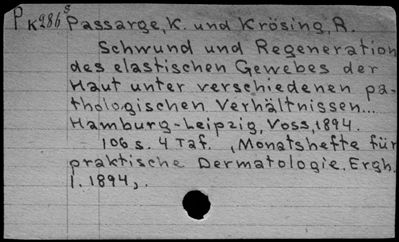 P K286 s Passarge, K. und Krösing, R.
Schwund und Regeneration
des elastischen Gewebes der
Haut unter verschiedenen pa-
thologischen Verhältnissen...
Hamburg-Leipzig, Voss, 1894.
106 s. 4 Taf. , Monatshefte für
praktische Dermatologie. Ergh.
1. 1894,.